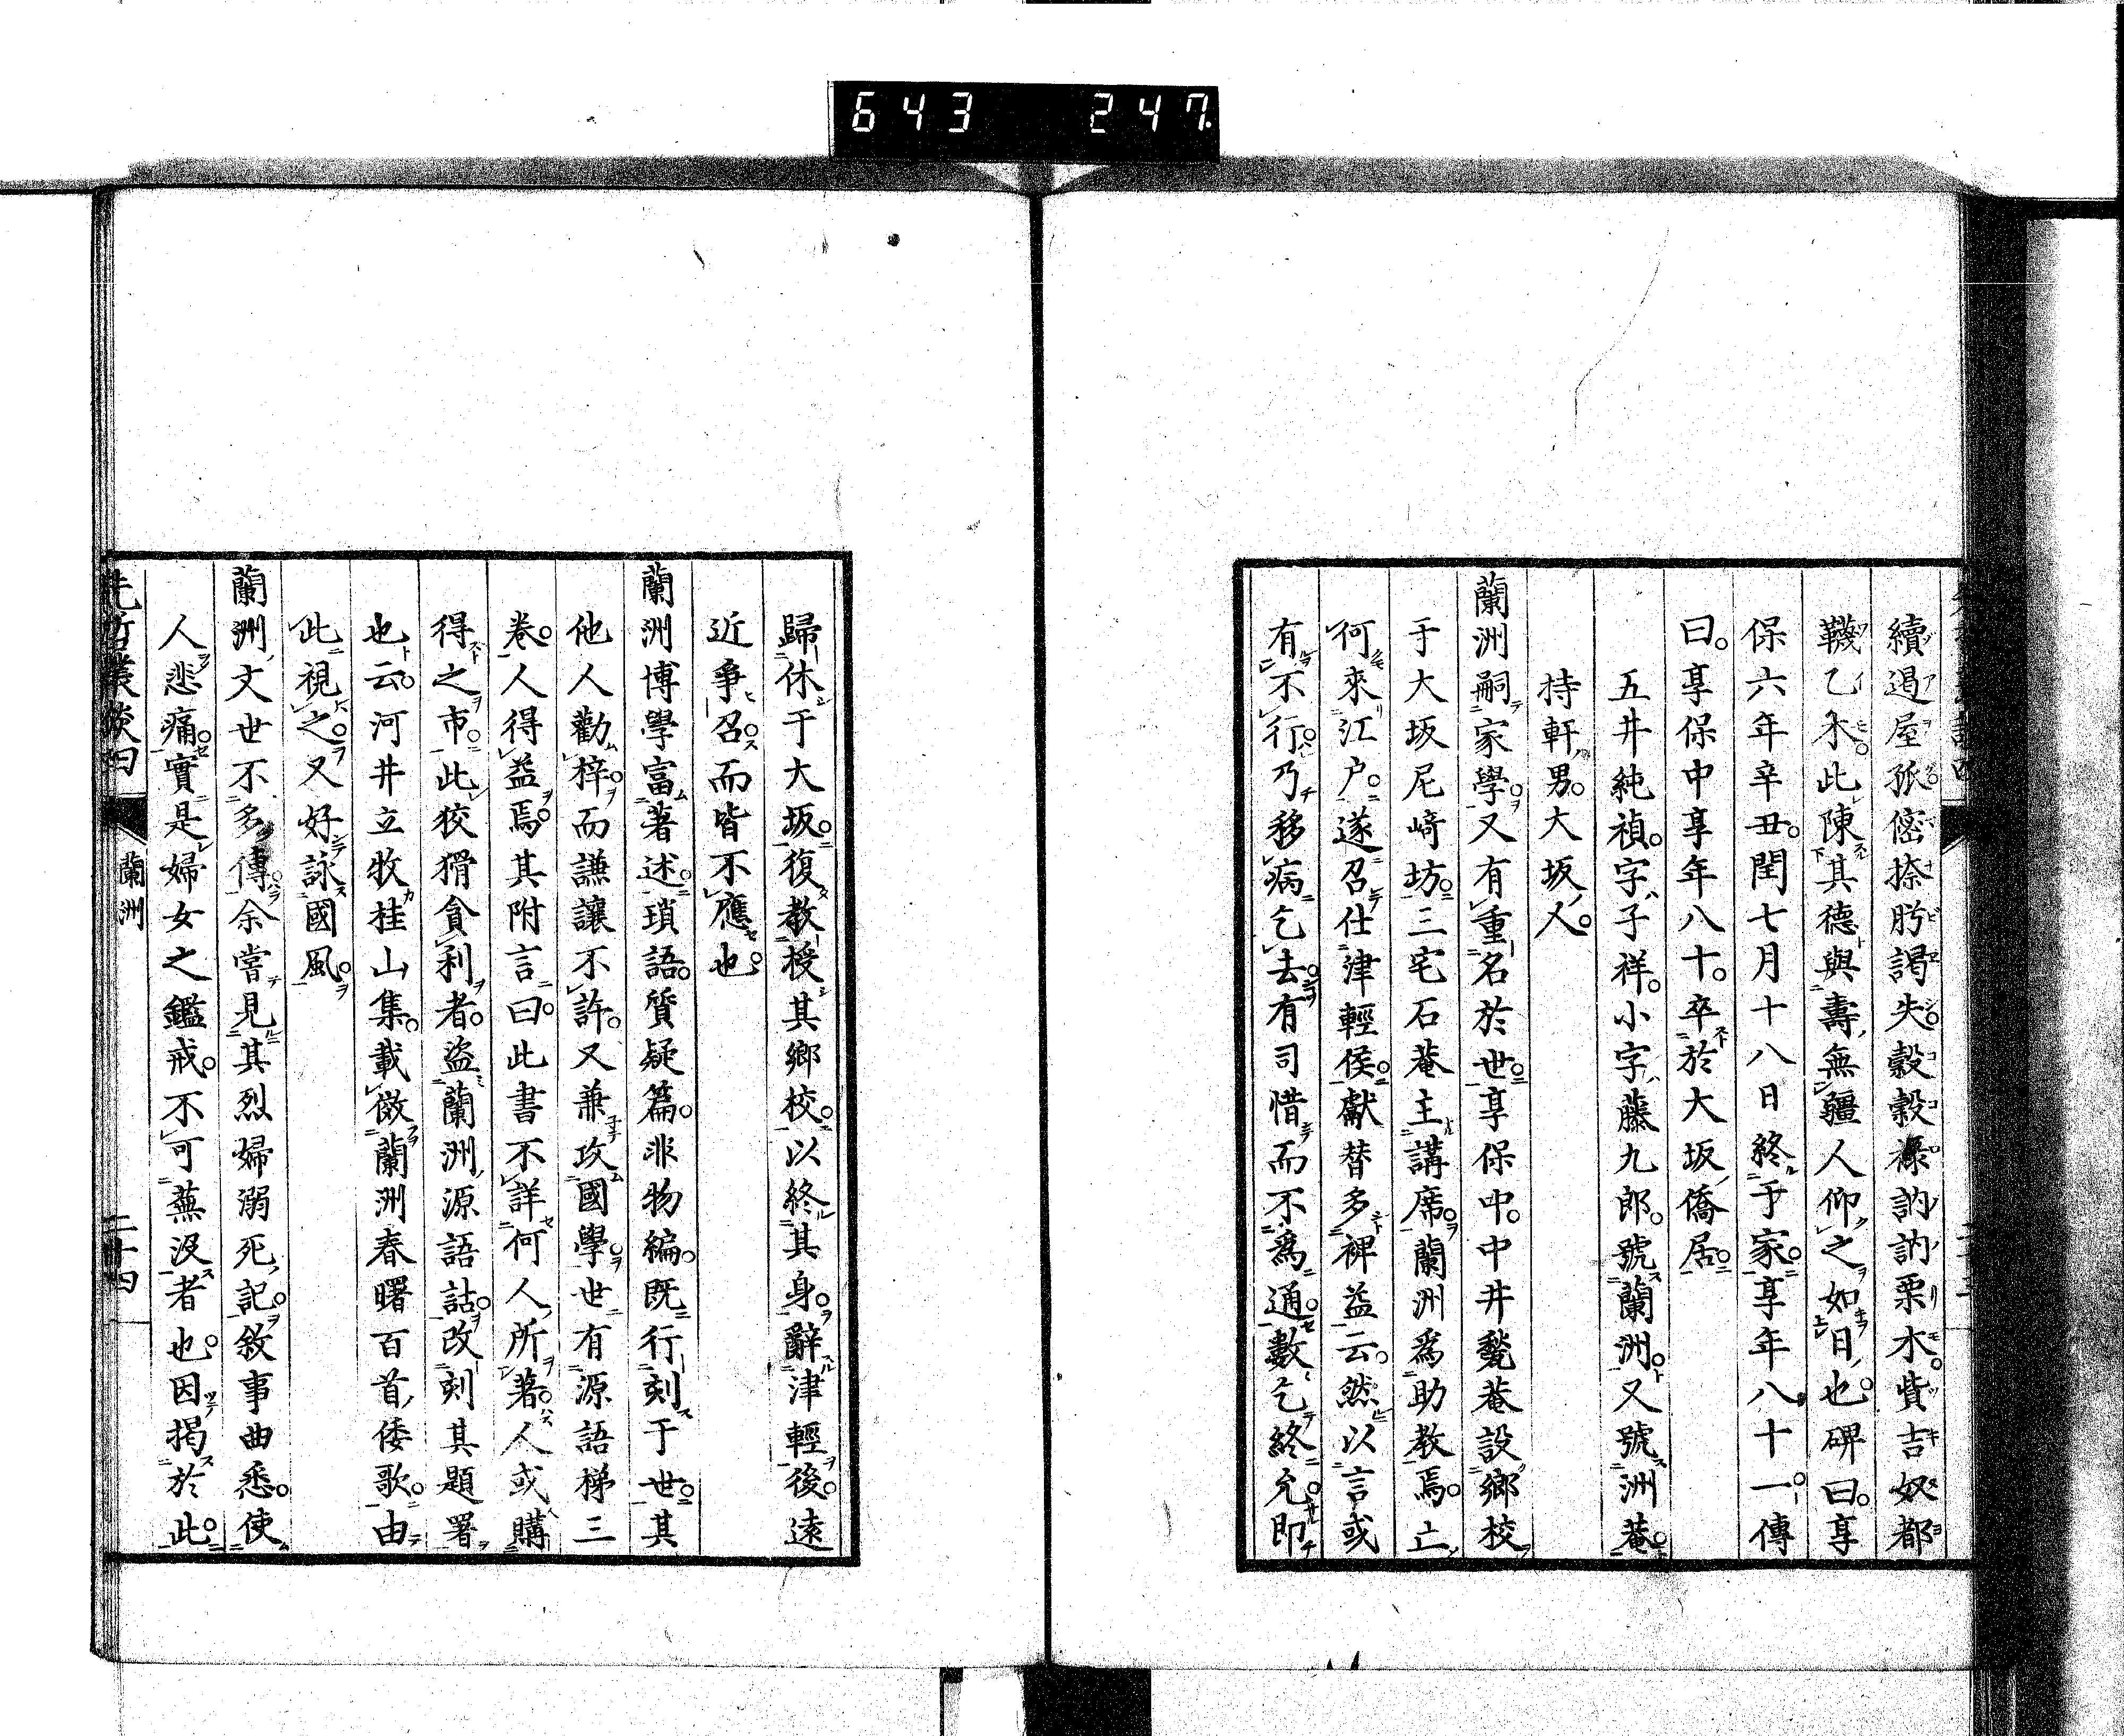 643 247
續遏屋孤
失穀穀祿訥訥栗木貲吉奴都
韈乙木此陳其德與壽無疆人仰之如日也碑曰享
保六年辛丑閏七月十八日終于家享年八十一傳
曰享保中享年八十卒於大坂僑居
五井純禎字子祥小字藤九郎號蘭洲又號洲菴
持軒男大坂人
蘭洲嗣家學又有重名於世享保中中井甃菴設鄉校
于大坂尼﨑坊三宅石菴主講席蘭洲爲助教焉亡
何來江户遂召仕津輕侯獻替多裨益云然以言或
有不行乃移病乞去有司惜而不爲通數乞終允即
歸休于大坂復教授其鄉校以終其身辭津輕後遠
近爭召而皆不應也
蘭洲博學富著述瑣語質疑篇非物編既行刻于世其
他人勸梓而謙讓不許又兼攻國學世有源語梯三
卷人得益焉其附言曰此書不詳何人所著人或購
得之市此狡猾貪利者盜蘭洲源語詁改刻其題署
也云河井立牧桂山集載倣蘭洲春曙百首倭歌由
此視之又好詠國風
蘭洲文世不多傳余嘗見其烈婦溺死記敘事曲悉使
人悲痛實是婦女之鑑戒不可蕪沒者也因揭於此
先哲叢談四
蘭洲
二十四